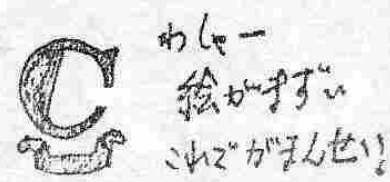 C
わしゃー
絵がまずい
これでがまんせい!